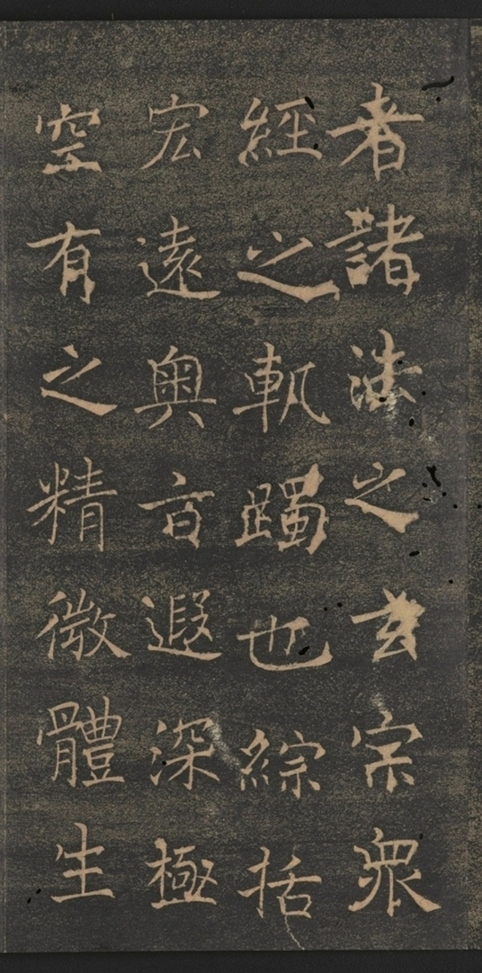 者諸法之玄宗衆
經之軌躅也綜括
宏遠奧旨遐深極
空有之精微體生